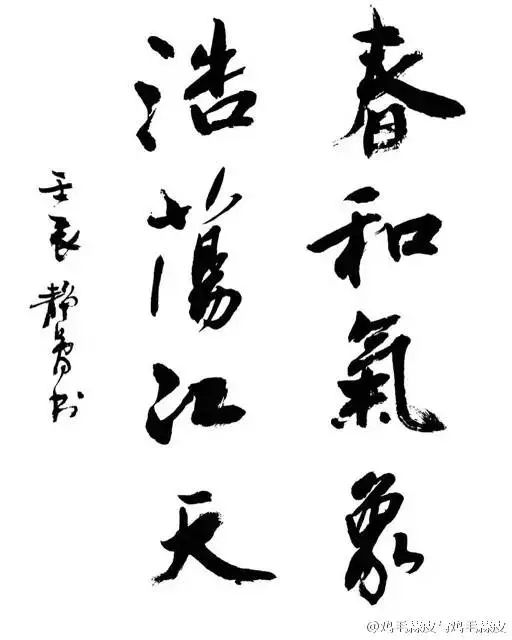 春和氣象
浩蕩江天
壬辰 静
@鸡毛蒜皮与鸡毛蒜皮